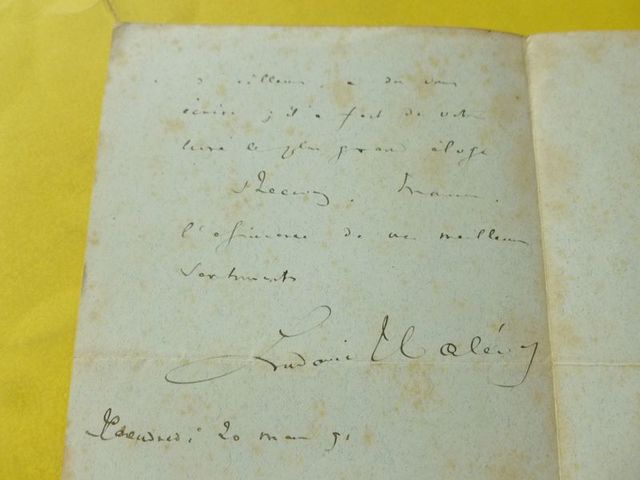 d'ailleurs a dû vous
écrire, il a fait de votre
livre le plus grand éloge
Recevez, Monsieur,
l'assurance de mes meilleurs
sentiments
Ludovic Halévy
Vendredi 20 mars 91